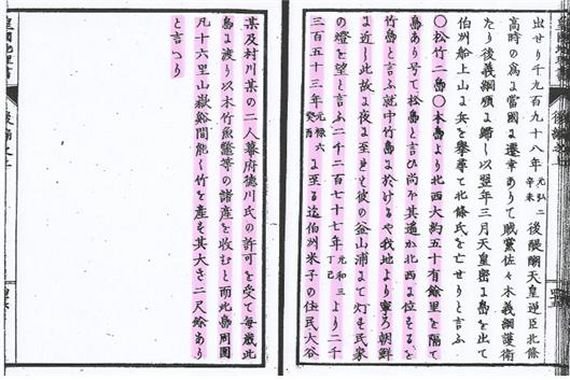 出せり千九百九十八年元弘二辛未後醍醐天皇逆臣北條
高時の為に當國に遷幸ありて賊黨佐々木義綱護衛
たり後義綱順に歸し以翌年三月天皇密に島を出て
伯州船上山に兵を擧尋て北條氏を亡せりと言ふ
〇松竹二島〇本島より北西大約五十有餘里を隔て
島あり号て松島と言ひ尚ホ其遥か北西に位するを
竹島と言ふ就中竹島に於けるや我地より寧ろ朝鮮
に近し此故に夜に至れは彼の釜山浦にて灯も民家
の燈を望と言ふ二千二百七十七年元和三丁巳より二千
三百五十三年元禄六癸酉に至る迄伯州米子の住民大谷
某及村川某の二人幕府徳川氏の許可を受て毎歳此
島に渡り以木竹魚鼈等の諸産を收むと而此島周囲
凡十六里山嶽谿間能く竹を産も其大さ二尺餘あり
と言へり